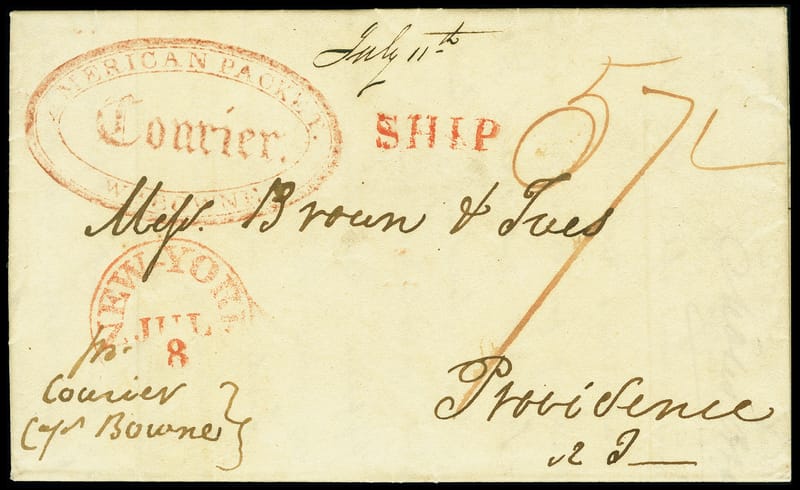 July 11th
AMERICAN PACKET.
Courier.
W. BOWNE
SHIP
Messrs. Brown & Ives
NEW-YORK
JUL
8
pr.
Courier
Capt Bowne
Providence
R I